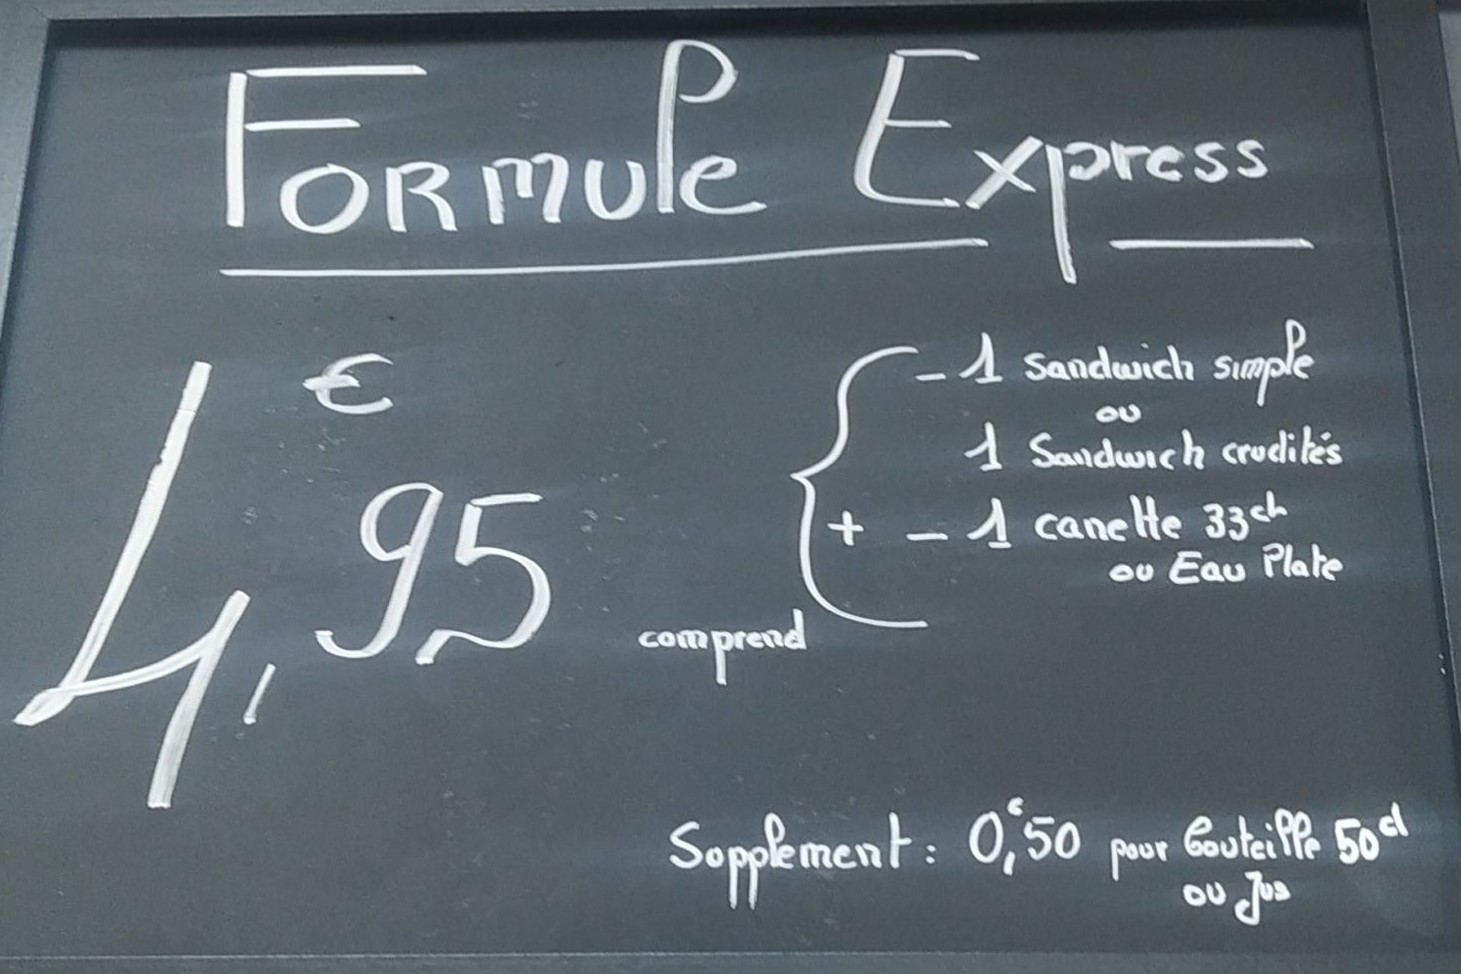 Formule Express
4,€95
comprend
- 1 Sandwich simple
ou
1 Sandwich crudités
+ - 1 canette 33cl
ou Eau Plate
Supplement : 0,€50 pour bouteille 50cl
ou Jus